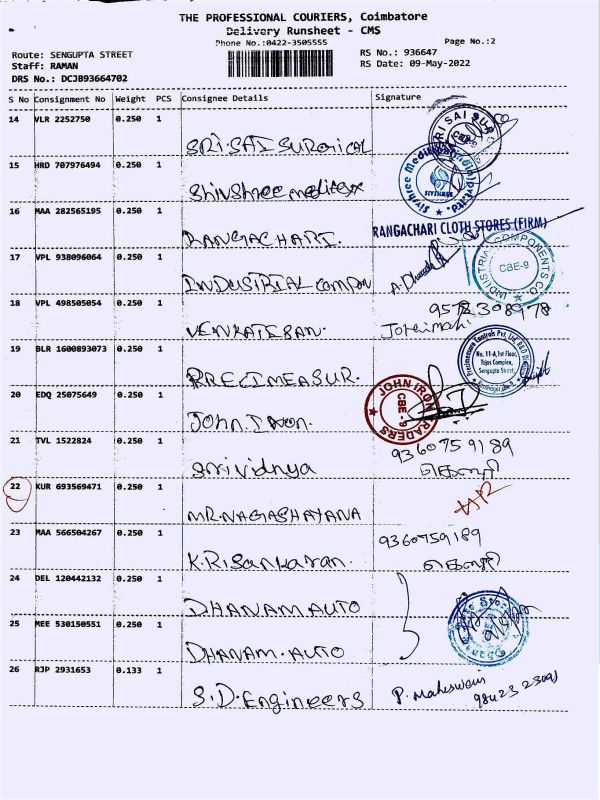 THE PROFESSIONAL COURIERS, Coimbatore
Delivery Runsheet - CMS
Phone No.:0422-3505555
Page No.:2
Route: SENGUPTA STREET
RS No.: 936647
Staff: RAMAN
RS Date: 09-May-2022
DRS No.: DCJB93664702
S No Consignment No Weight PCS Consignee Details Signature
14 VLR 2252750 0.250 1
SRI SAI SURGICAL
15 HRD 707976494 0.250 1
Shivshree
16 MAA 282565195 0.250 1
RANGACHARI.
RANGACHARI CLOTH STORES (FIRM)
17 VPL 938096064 0.250 1
INDUSTRIAL Compon
INDUSTRIAL COMPONENTS CO.
CBE-9
18 VPL 498505054 0.250 1
VENKATESAN.
19 BLR 1600893073 0.250 1
PRECIMEASUR.
No. 11-A, 1st Floor,
Tejas Complex,
Sengupta Street,
20 EDQ 25075649 0.250 1
JOHN. IRON.
JOHN IRON TRADERS
CBE - 9
21 TVL 1522824 0.250 1
Srividhya
9360759189
22 KUR 693569471 0.250 1
MR.NAGASHAYANA
23 MAA 566504267 0.250 1
K.R.Sankaran.
9360759189
24 DEL 120442132 0.250 1
DHANAM AUTO
25 MEE 530150551 0.250 1
DHANAM.AUTO
26 RJP 2931653 0.133 1
S.D.Engineers
P. Maheswari